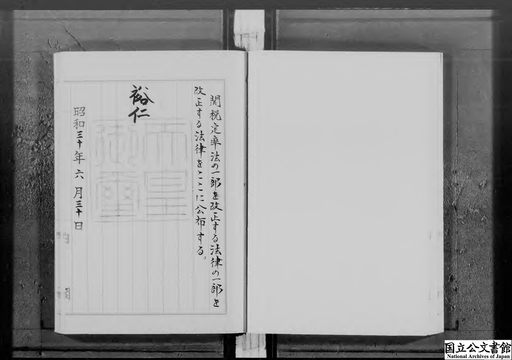 関税定率法の一部を改正する法律の一部を
改正する法律をここに公布する。
裕仁
天皇
御璽
昭和三十年六月三十日
国立公文書館
National Archives of Japan